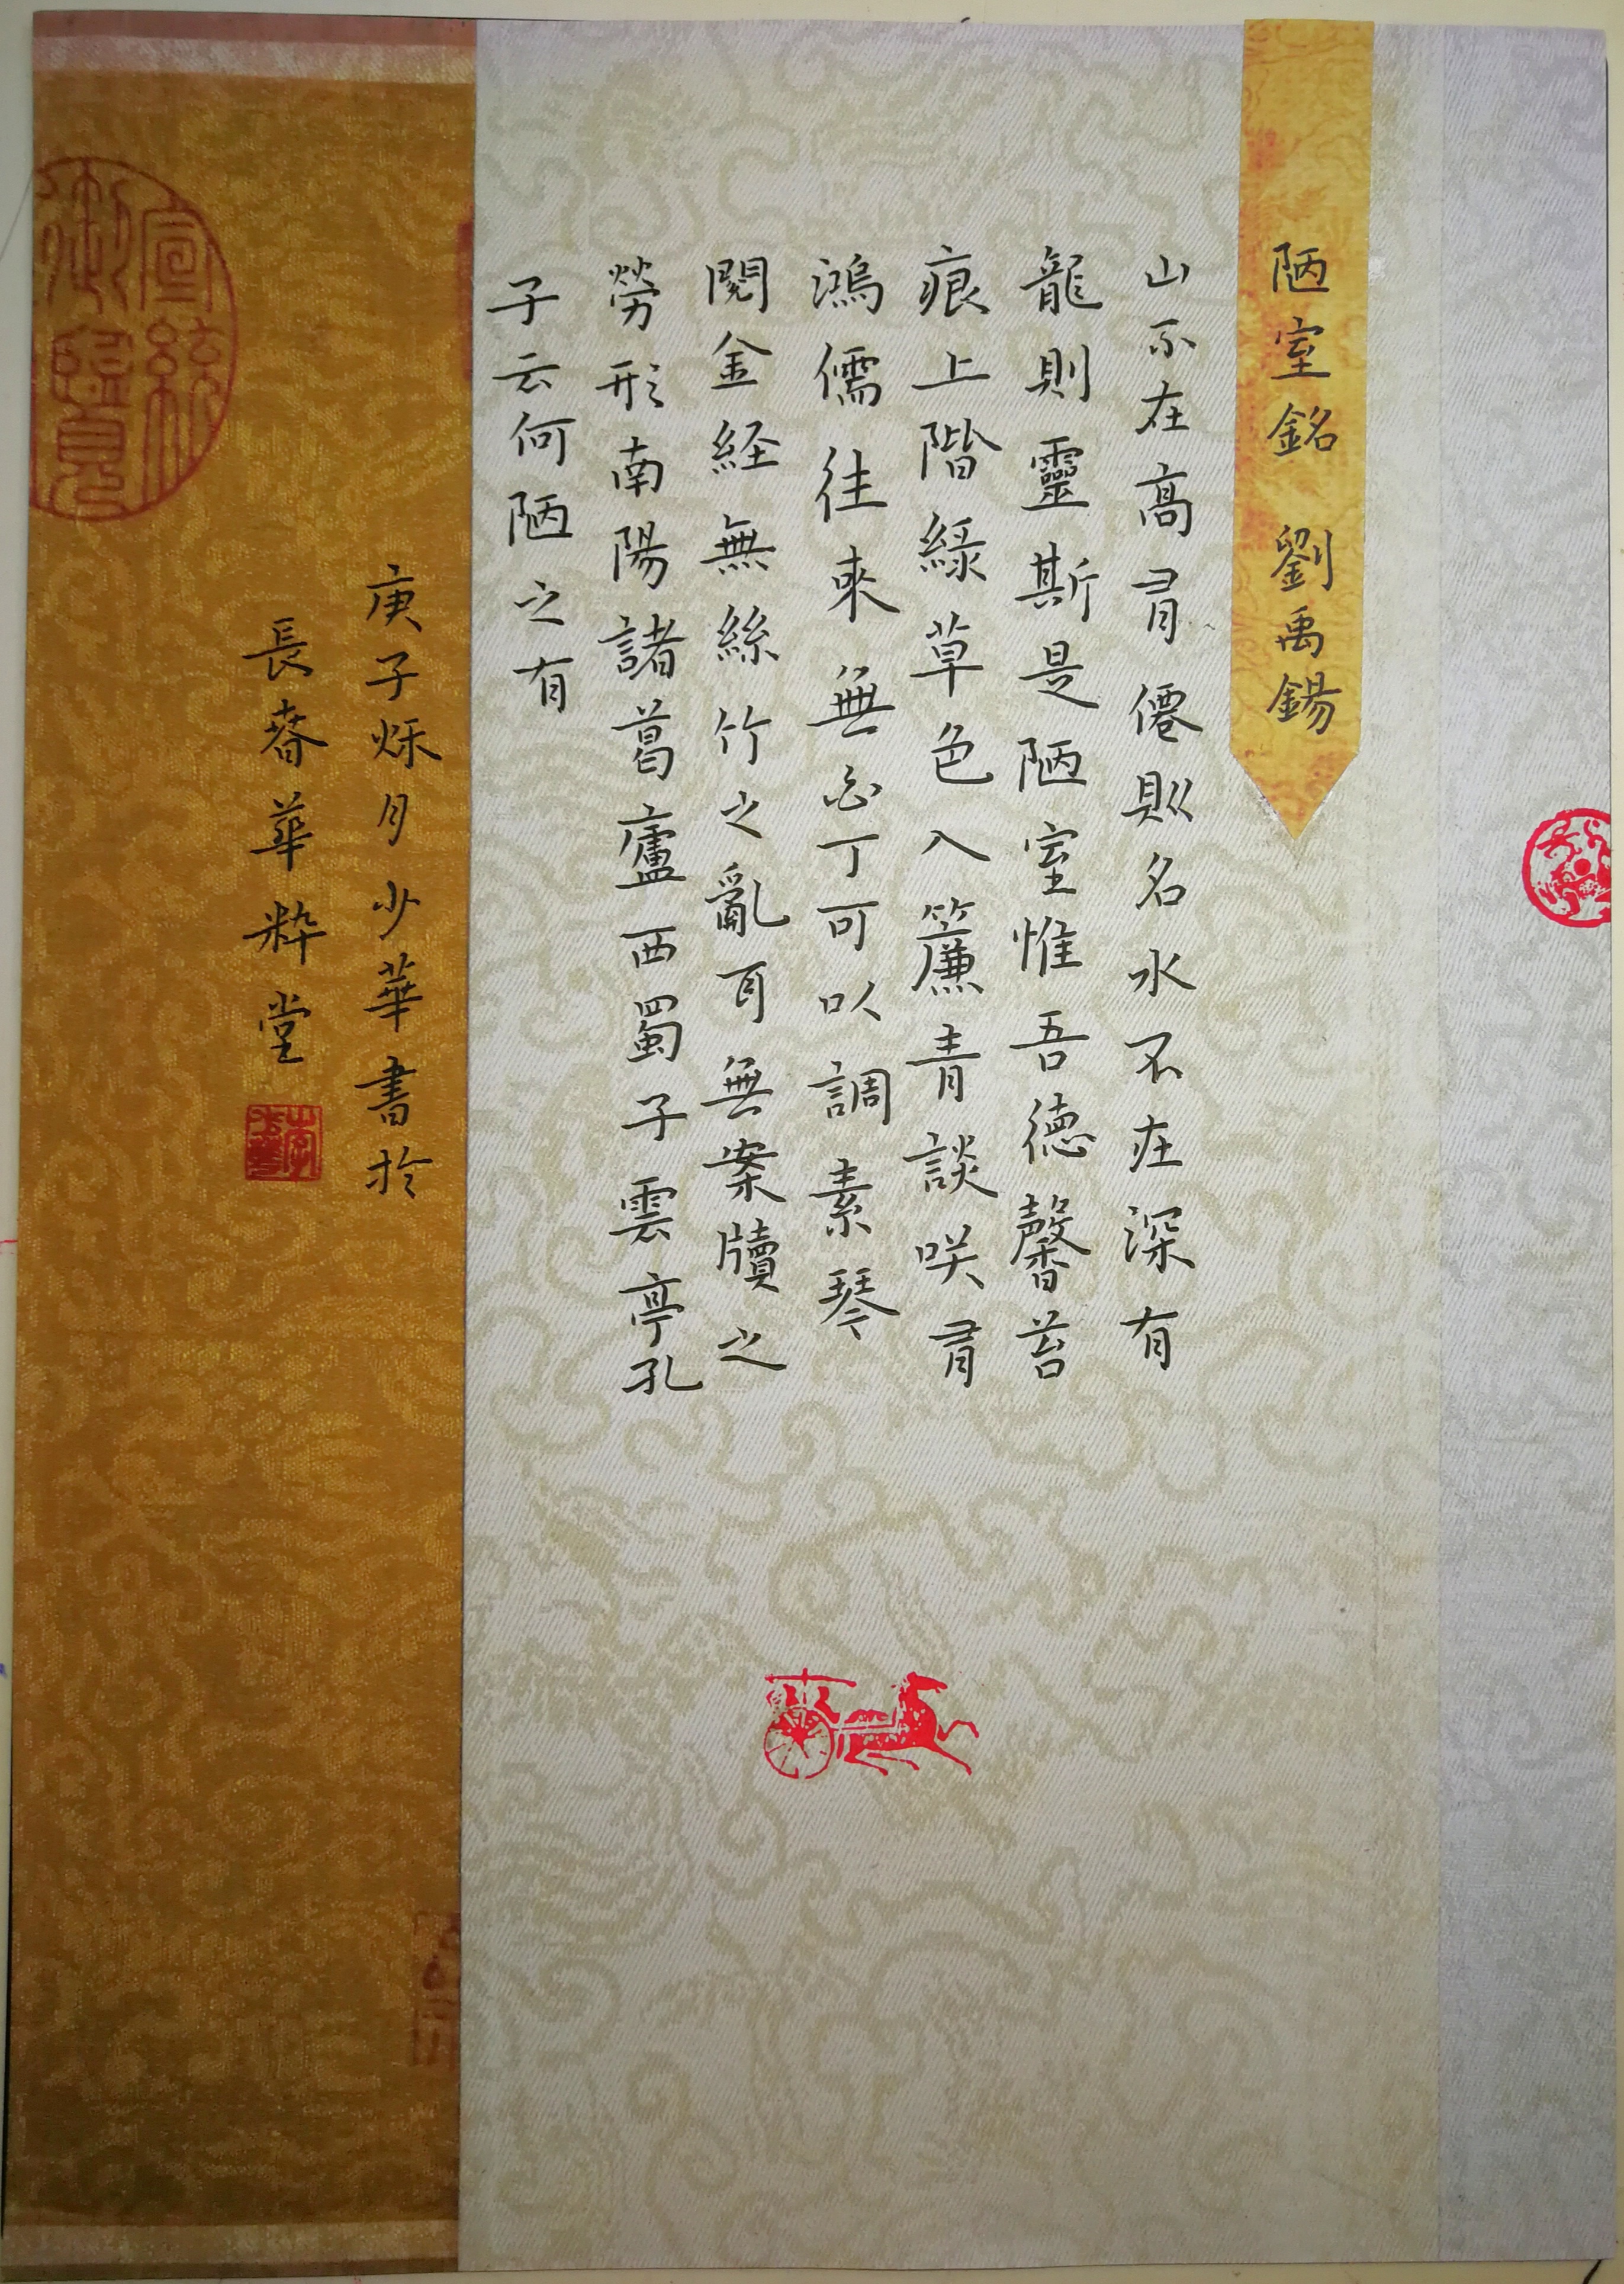 陋室銘 劉禹錫
山不在高有僊則名水不在深有
龍則靈斯是陋室惟吾德馨苔
痕上階綠草色入簾青談咲有
鴻儒往來無白丁可以調素琴
閱金経無絲竹之亂耳無案牘之
勞形南陽諸葛廬西蜀子雲亭孔
子云何陋之有
庚子烁月少華書於
長春華粹堂
宣統
御覽